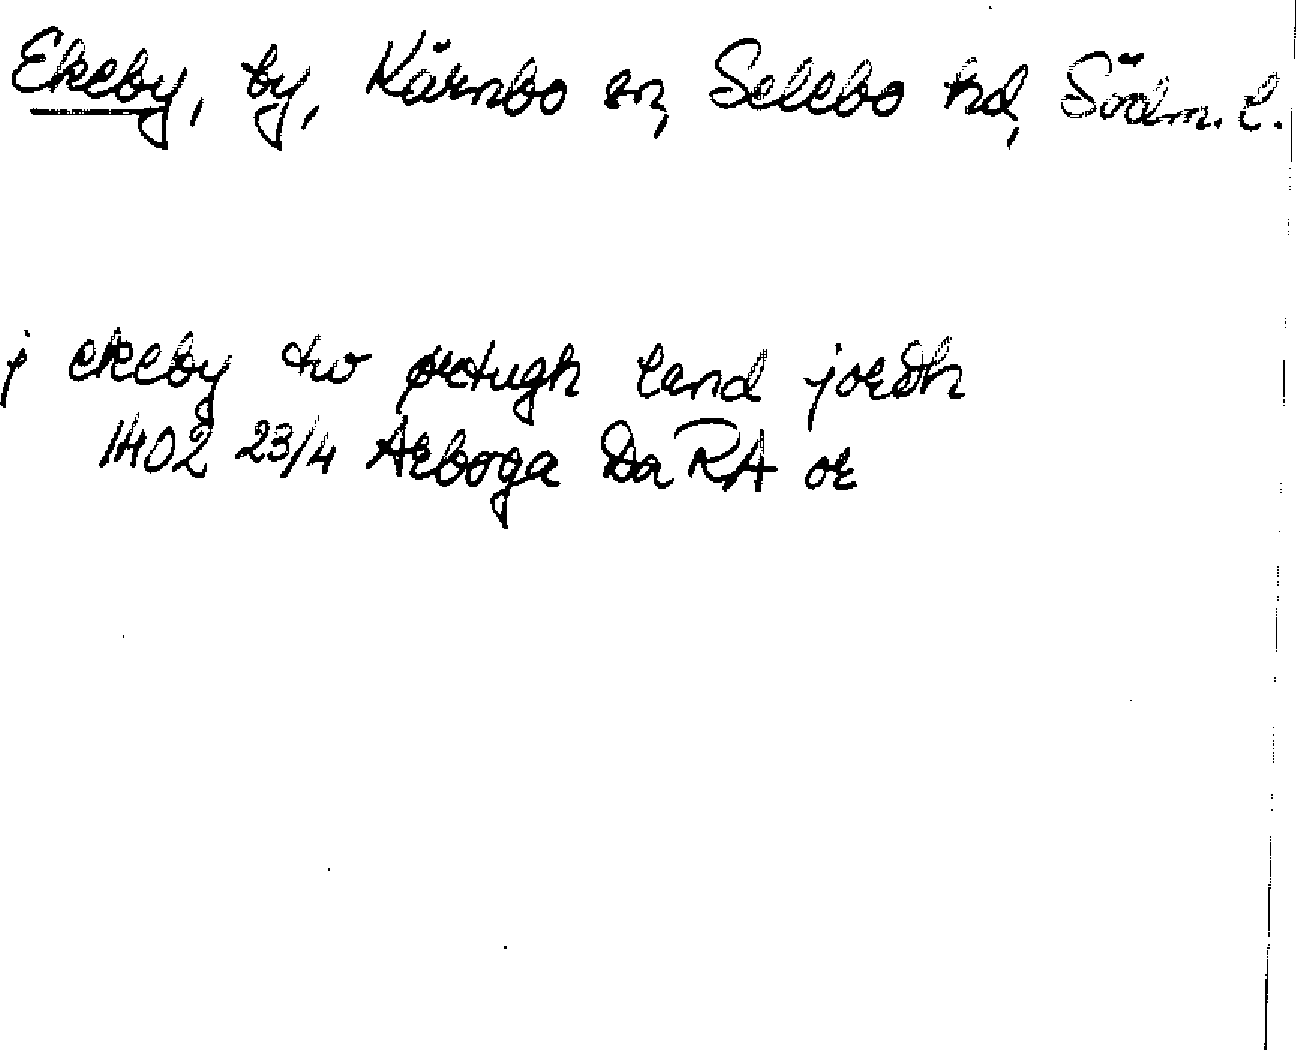 Ekeby, by, Kärnbo sn, Selebo hd, Södm. l.
j ekeby tw ørtugh land jordh
1402 23/4 Arboga Da RA or